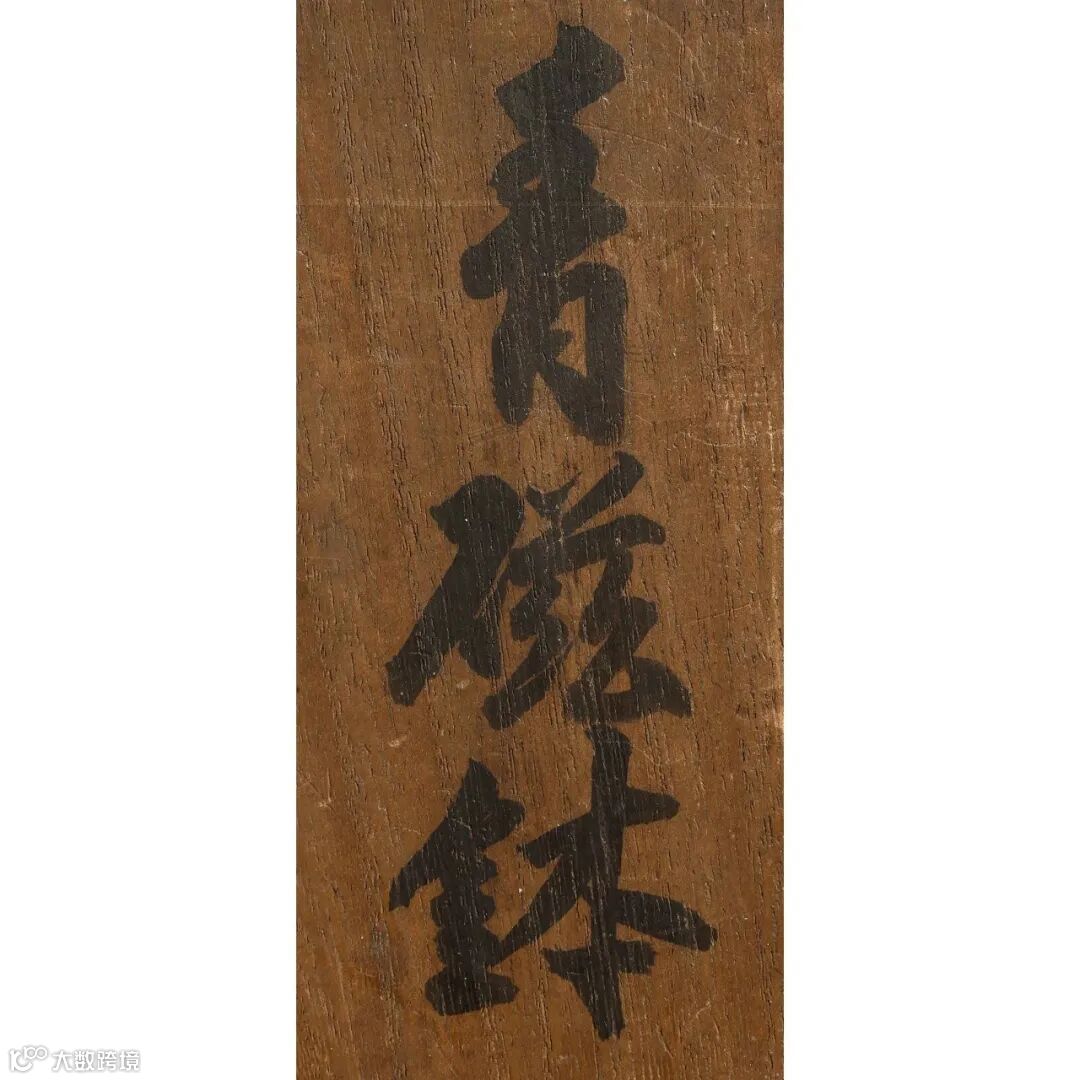 青磁鉢
大数跨境